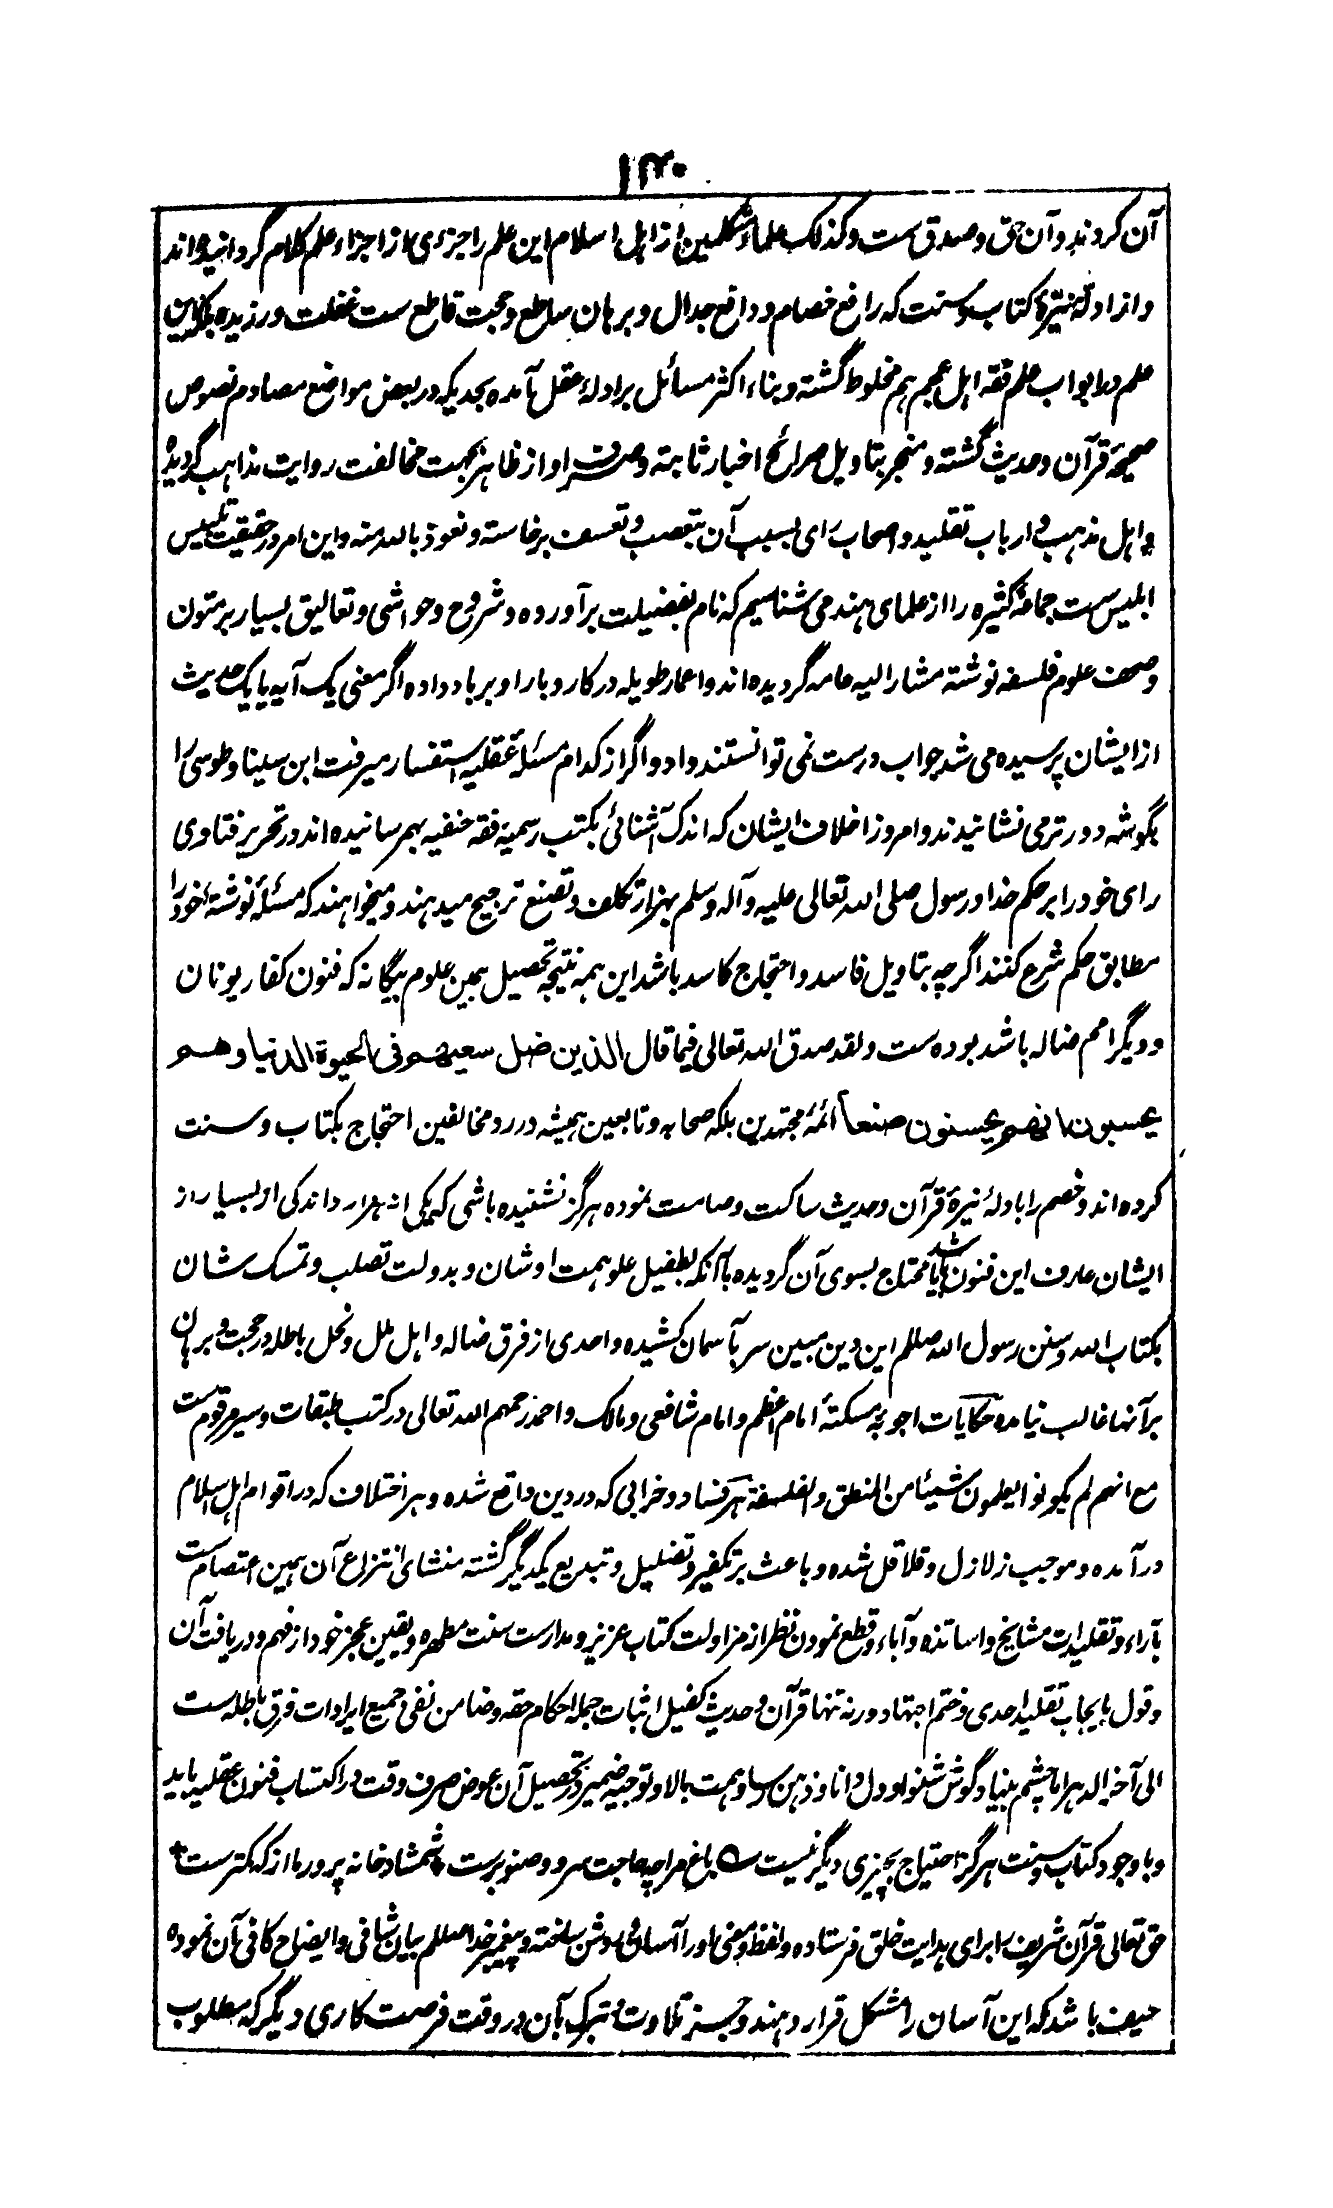 ۱۳۰
آن کردند و آن حق و صدق ست و کذلک علما و متکلمین از اهل اسلام این علم را جزءی از اجزاء علم کلام گردانیده اند
و از ادلهٔ نیّرهٔ کتاب و سنت که رافع خصام و دافع جدال و برهان ساطع و حجت قاطع ست غفلت ورزیده بلکه این
علم در ابواب علم فقه اهل عجم هم مخلوط گشته و بناء اکثر مسائل بر ادلهٔ عقل آمده بحدیکه در بعض مواضع مصادم نصوص
صحیحهٔ قرآن و حدیث گشته و منجر بتاویل صرائح اخبار ثابته و صرف او از ظاهر بجهت مخالفت روایت مذاهب گردیده
و اهل مذهب و ارباب تقلید و اصحاب رای بسبب آن بتعصب و تعسف برخاسته و نعوذ بالله منه و این امر در حقیقت تلبیس
ابلیس ست جماعهٔ کثیره را از علمای هند می شناسیم که نام بفضیلت برآورده و شروح و حواشی و تعالیق بسیار بر متون
و صحف علوم فلسفه نوشته مشار الیه عامه گردیده اند و اعمار طویله در کار و بار او برباد داده اگر معنی یک آیه یا یک حدیث
از ایشان پرسیده می شد جواب درست نمی توانستند داد و اگر از کدام مسئلهٔ عقلیه استفسار میرفت ابن سینا و طوسی را
بگوشه دورتر می نشانیدند و امروز اخلاف ایشان که اندک آشنائی بکتب رسمیهٔ فقه حنفیه بهم رسانیده اند در تحریر فتاوی
رای خود را بر حکم خدا و رسول صلی الله تعالی علیه و آله و سلم بهزار تکلف و تصنع ترجیح میدهند و میخواهند که مسئلهٔ نوشتهٔ خود را
مطابق حکم شرع کنند اگرچه بتاویل فاسد و احتجاج کاسد باشد این همه نتیجهٔ تحصیل همین علوم بیگانه که فنون کفار یونان
و دیگر امم ضاله باشد بوده ست ولقد صدق الله تعالی فیما قال الذین ضل سعیهم فی الحیوة الدنیا وهم
یحسبون انهم یحسنون صنعا ائمهٔ مجتهدین بلکه صحابه و تابعین همیشه در رد مخالفین احتجاج بکتاب و سنت
کرده اند و خصم را بادلهٔ نیرهٔ قرآن و حدیث ساکت و صامت نموده هرگز نشنیده باشی که یکی از هزار و اندکی از بسیار از
ایشان عارف این فنون باشد یا محتاج بسوی آن گردیده با آنکه بطفیل علو همت اوشان و بدولت تصلب و تمسک شان
بکتاب الله و سنن رسول الله صللم این دین مبین سر بآسمان کشیده و احدی از فرق ضاله و اهل ملل و نحل باطله در حجت و برهان
بر آنها غالب نیامده حکایات اجوبهٔ مسکتهٔ امام اعظم و امام شافعی و مالک و احمد رحمهم الله تعالی در کتب طبقات و سیر مرقوم ست
مع انهم لم یکونوا یعلمون شیئا من المنطق والفلسفة هر فساد و خرابی که در دین واقع شده و هر اختلاف که در اقوام اهل اسلام
درآمده و موجب زلازل و قلاقل شده و باعث بر تکفیر و تضلیل و تبدیع یکدیگر گشته منشای انتزاع آن همین اعتصام ست
بآراء و تقلیدات مشایخ و اساتذه و آباء و قطع نمودن نظر از مزاولت کتاب عزیز و مدارست سنت مطهره و یقین عجز خود از فهم و دریافت آن
و قول بایجاب تقلید احدی و ختم اجتهاد ورنه تنها قرآن و حدیث کفیل اثبات جمله احکام حقه و ضامن نفی جمیع ایرادات فرق باطله ست
الی آخر الدهر اما چشم بینا و گوش شنوا و دل دانا و ذهن رسا و همت بالا و توجیه ضمیر در تحصیل آن عوض صرف وقت در اکتساب فنون عقلیه باید
و با وجود کتاب و سنت هرگز احتیاج بچیزی دیگر نیست ؎ باغ مرا چه حاجت سرو و صنوبرست * شمشاد خانه پرور ما از که کمترست *
حق تعالی قرآن شریف را برای هدایت خلق فرستاده و لفظ و معنی او را آسان و روشن ساخته و پیغمبر خدا صللم بیان شافی و ایضاح کافی آن نموده
حیف باشد که این آسان را مشکل قرار دهند و جز تلاوت و تبرک بآن در وقت فرصت کاری دیگر که مطلوب